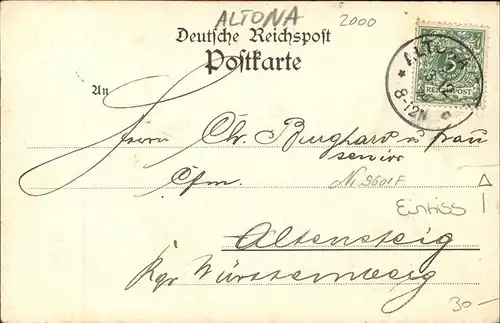 ALTONA
2000
Deutsche Reichspost
Postkarte
ALTONA
8-12N
5
REICHSPOST
An
Herrn Chr. Burghard u Frau
senior
Cfm.
Einriss
Altensteig
Kgr Württemberg
30.-